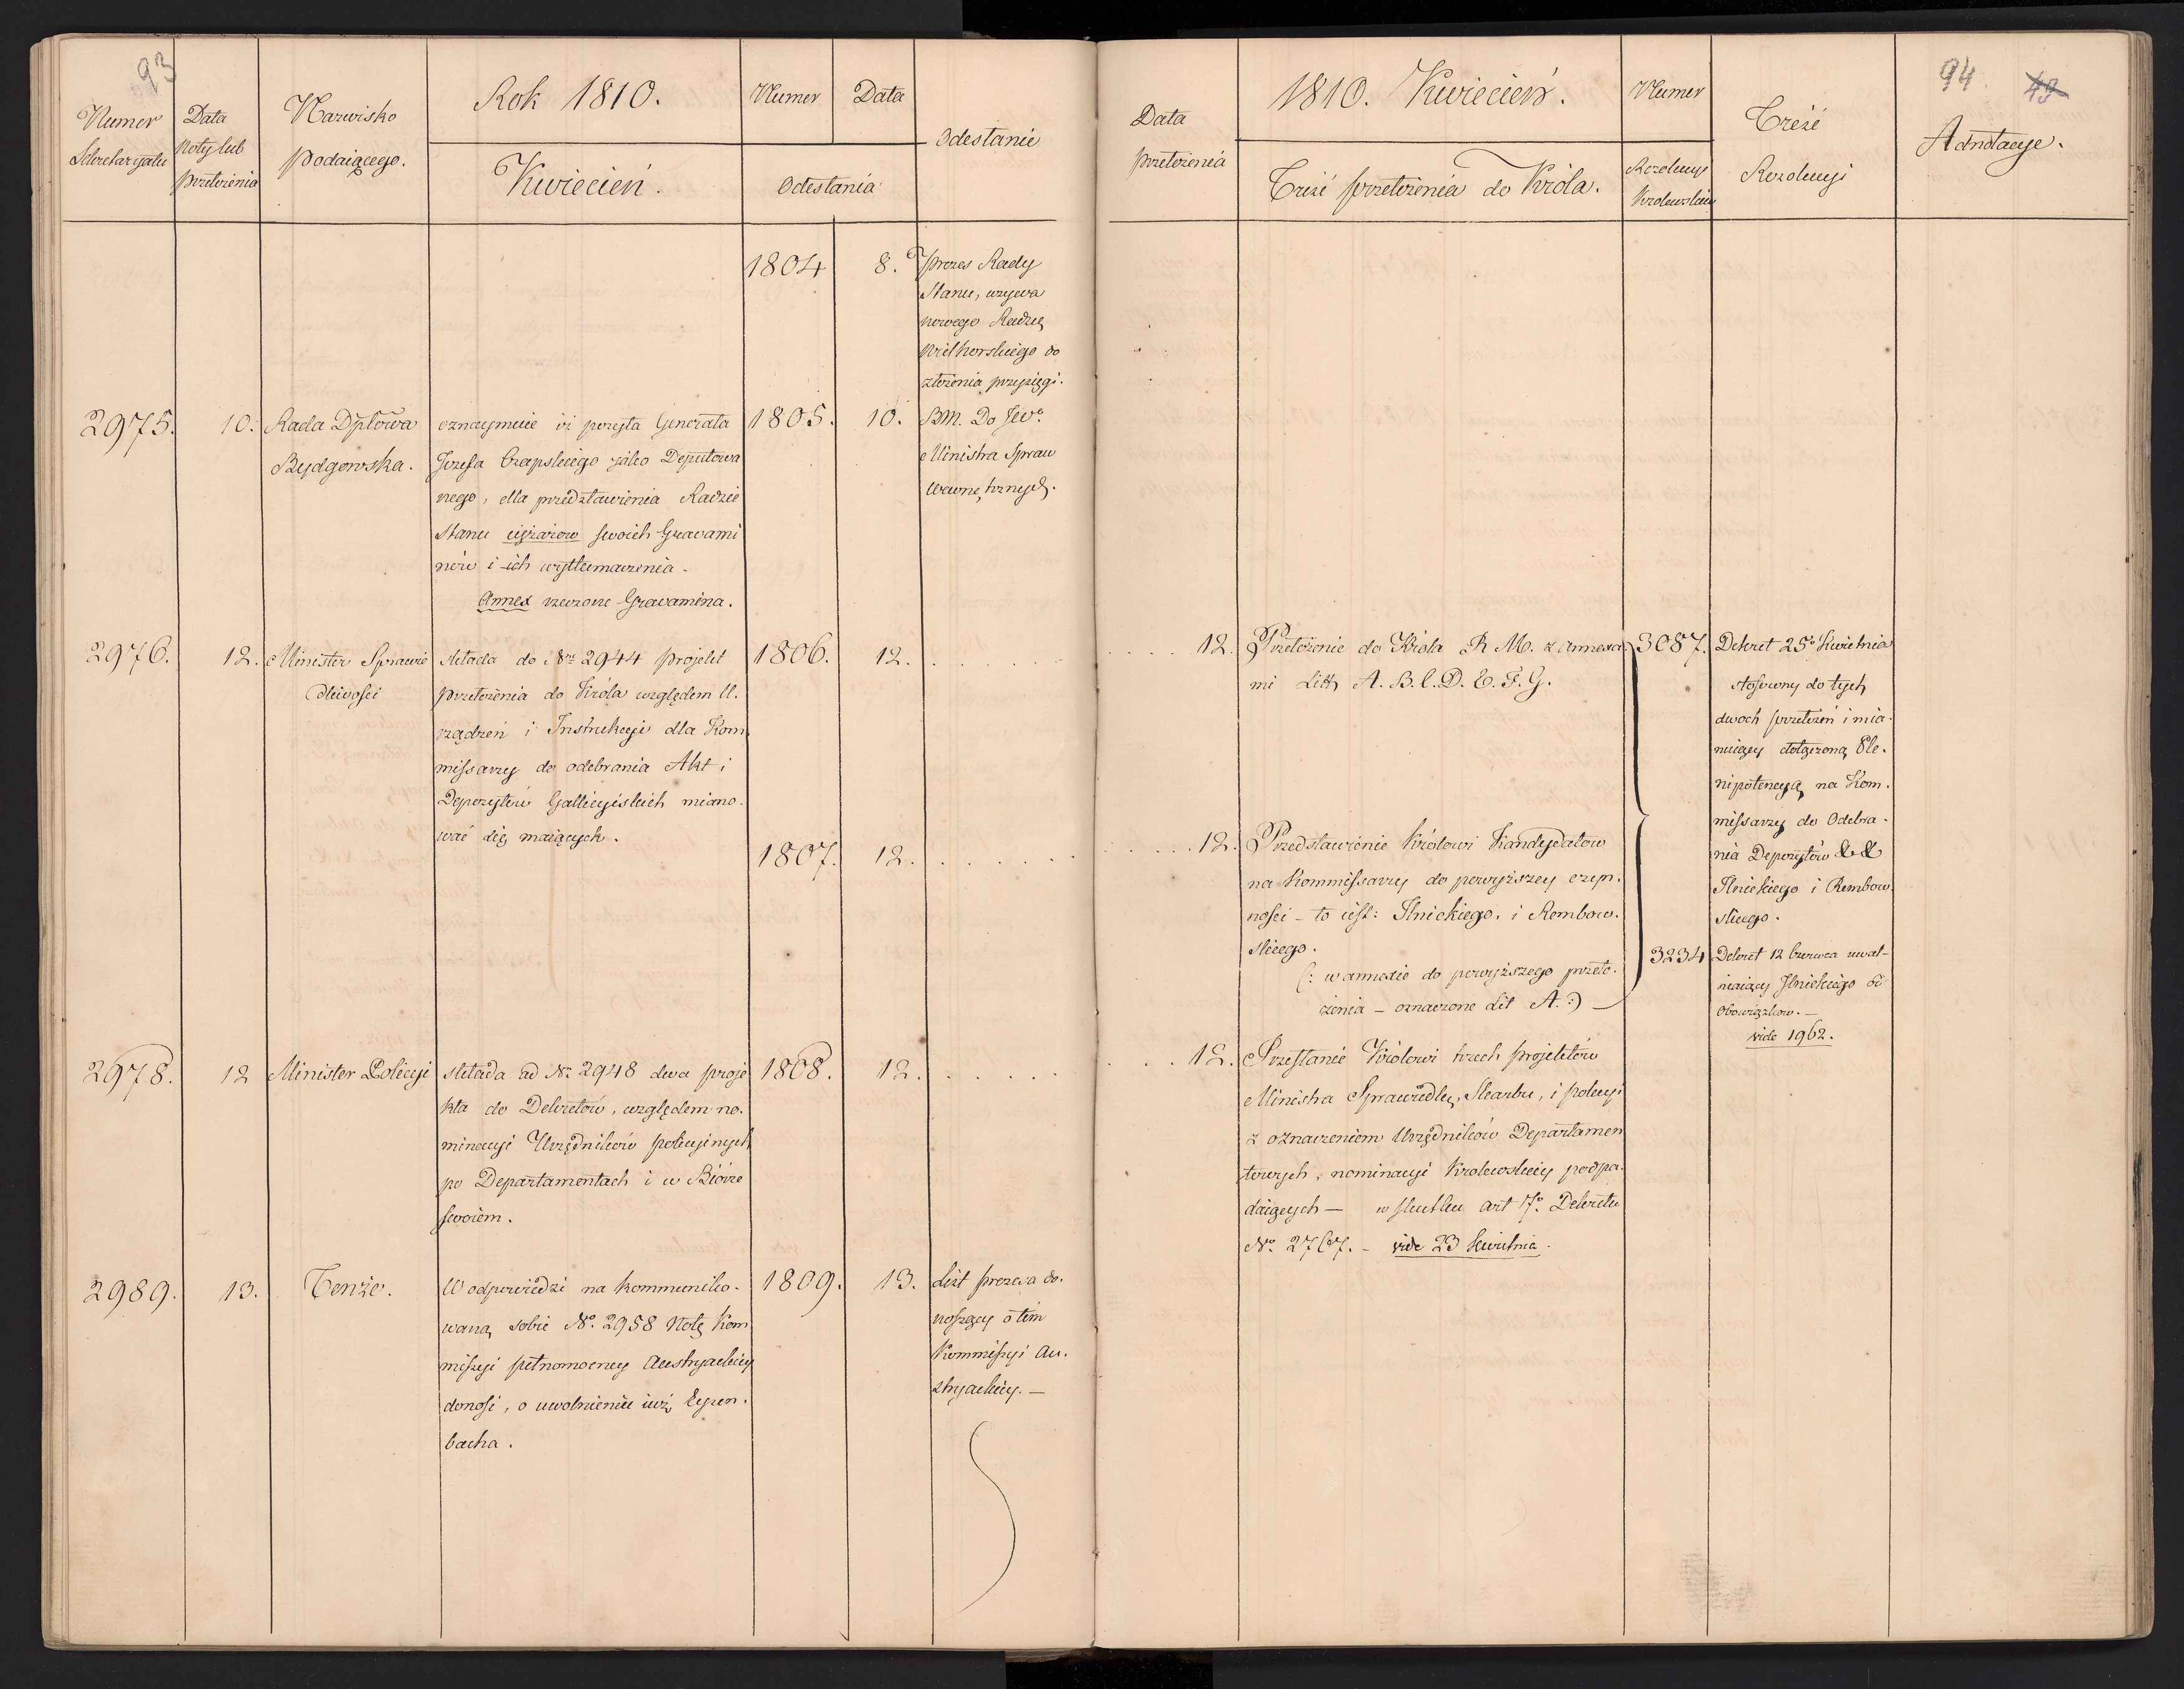 93
Numer
Sekretaryatu
Data
Noty lub
przełożenia
Nazwisko
podaiącego.
Rok 1810.
Kwiecień.
Numer
Data
Odesłania
Odesłanie
1804
8.
Prezes Rady
Stanu, wzywa
nowego Radzcę
Wielhorskiego do
złożenia przysięgi.
2975.
10.
Rada Dptowa
Bydgowska.
oznaymuie iż posyła Generała
Jozefa Czapskiego jako Deputowa
nego, dla przedstawienia Radzie
Stanu ciężarow swoich Gravami
nów i ich wytłumaczenia.
Annex rzeczone Gravamina.
1805.
10.
BM. Do Sew.
Ministra Spraw
Wewnętrznych.
2976.
12.
Minister Sprawie
dliwości
składa do Nru 2944 projekt
przełożenia do Króla względem U.
rządzeń i Instrukcyi dla Kom
missarzy do odebrania Akt i
Depozytów Gallicyiskich miano.
wać się maiących.
1806.
12.
1807.
12.
2978.
12
Minister Policyi
składa ad Nr. 2948 dwa proje
kta do Dekretów, względem no.
minacyi Urzędników policyinych
po Departamentach i w Biórze
swoiem.
1808.
12.
2989.
13.
Tenże.
W odpowiedzi na kommuniko.
waną sobie No. 2958 Notę Kom
missyi pełnomocney Austryackiey
donosi, o uwolnieniu iuż Eysen.
bacha.
1809.
13.
List prezesa do.
noszący o tém
Kommissyi Au.
stryackiey. —
94
49
Data
przełożenia
1810. Kwiecień.
Treść przełożenia do Króla.
Numer
Rezolucyi
Krolewskiey
Treść
Rezolucyi
Adnotacye.
12.
Przełożenie do Króla R M. z annexa
mi Litt A. B. C. D. E. F. G.
3087.
Dekret 25o Kwietnia
stosowny do tych
dwoch przełożeń i mia.
nuiący dołączoną Ple.
nipotencyą na Kom.
missarzy do Odebra.
nia Depozytów & &
Ilnickiego i Rembow.
skiego.
12.
Przedstawienie Królowi Kandydatow
na Kommissarzy do powyższey czyn.
ności – to iest: Ilnickiego, i Rembow.
skiego.
(: w annexie do powyższego przeło.
żenia – oznaczone Lit A. :) —
3234
Dekret 12 Czerwca uwal-
niaiący Ilnickiego od
Obowiązkow. —
vide 1962.
12.
Przesłanie Królowi trzech projektów
Ministra Sprawiedlw, Skarbu, i policyi
z oznaczeniem Urzędników Departamen
towych, nominacyi Krolewskiey podpa.
daiących — w skutku art 7o. Dekretu
No. 2767. – vide 23 Kwietnia.